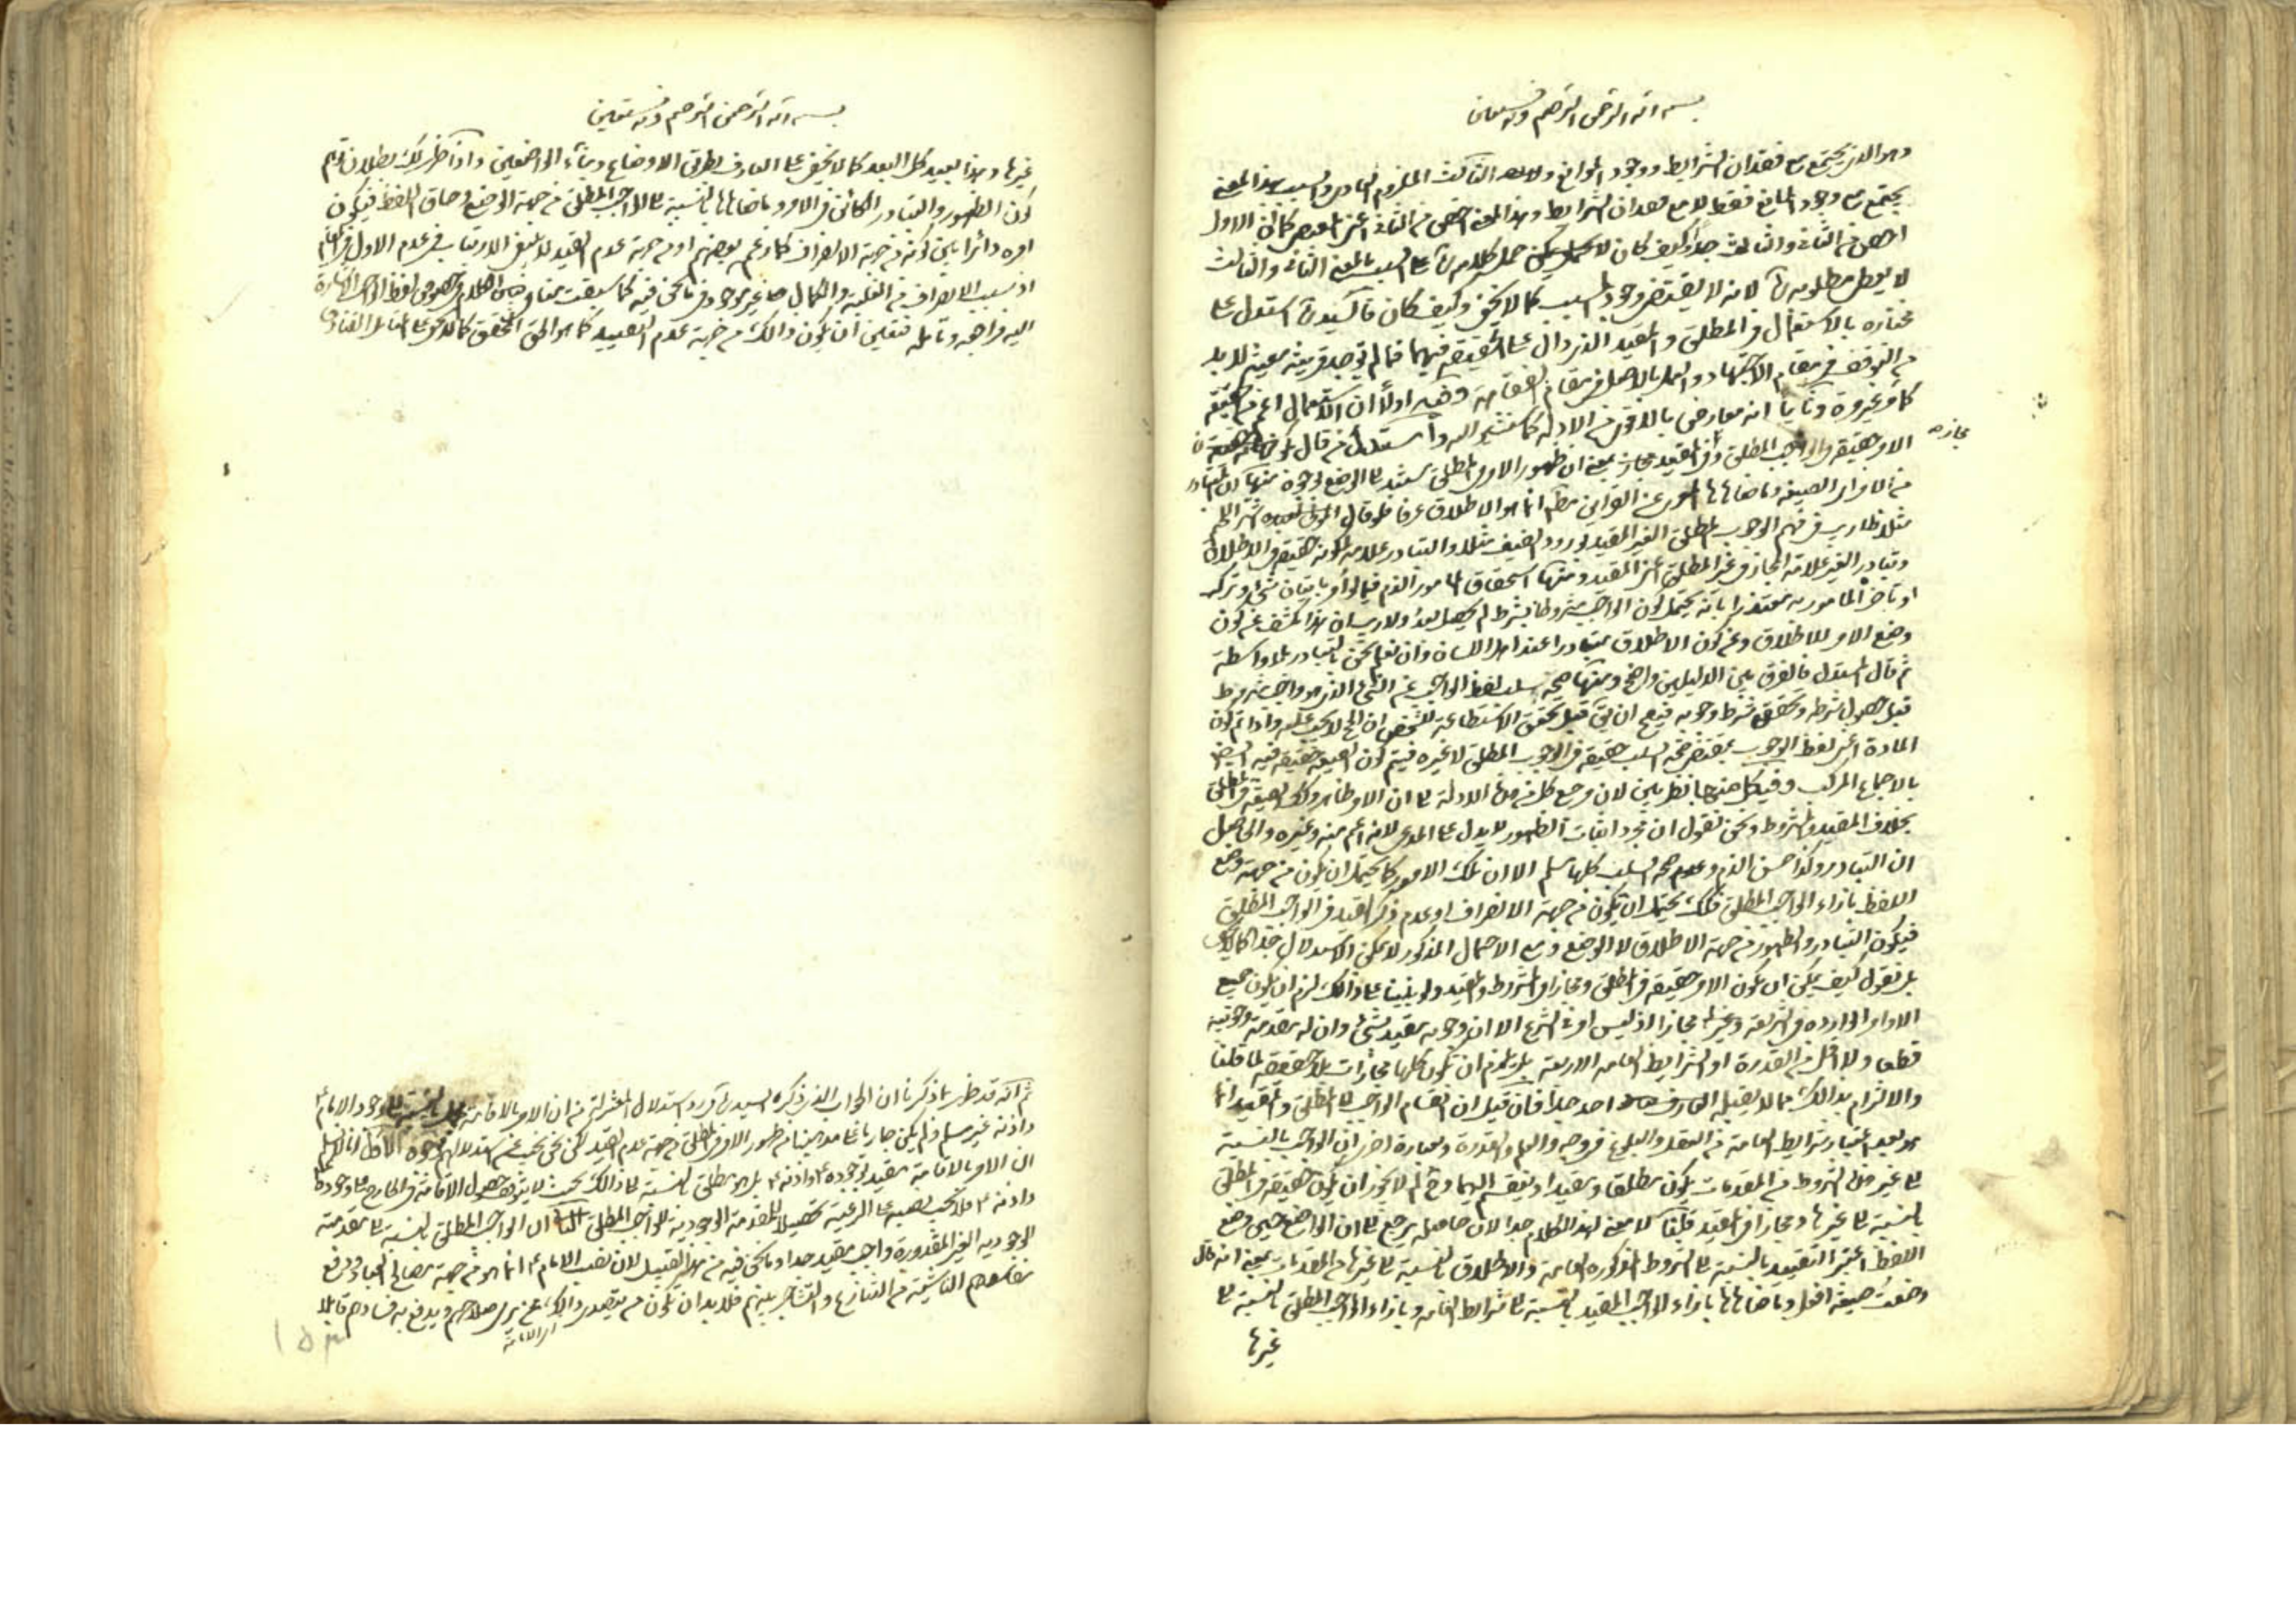 بسم الله الرحمن الرحيم وبه نستعين
وهو الذي يجتمع مع فقدان الشرايط ووجود الموانع الثالث الملزوم السبب بهذا المعنى
يجتمع مع وجود المانع فقط لا مع فقدان الشرايط وهذا المعنى اخص من الثاني كما ان الاول
اخص من الثاني والثالث جدا وكيف كان لا يمكن حمل كلامه على السبب بالمعنى الثاني والثالث
لا يعطى مطلوبه لانه لا يقتضي وجود المسبب كما لا يخفى وكيف كان فالسيد استدل على
مختاره بالاستعمال في المطلق والمقيد الدال على الحقيقة فيهما فما لم توجد قرينة معينة لا بد
من التوقف في مقام الاجتهاد والعمل بالاصل في مقام الفقاهة وفيه اولا ان الاستعمال اعم من الحقيقة
كما مر غير مرة وثانيا انه معارض بالاقوى من الادلة كما ستشير اليه واستدل من قال
مجازه
الامر حقيقة في الواجب المطلق وفي المقيد مجاز بمعنى ان ظهور الامر في المطلق مستند الى الوضع بوجوه منها ان المتبادر
من الاوامر الصيغة وما ضاهاها عن القراين مط انما هو الاطلاق عرفا فلو قال المولى لعبده اشتر اللحم
مثلا فلا ريب في فهم الوجوب المطلق الغير المقيد بورود الضيف مثلا والتبادر علامة لكونه حقيقة في الاطلاق
وتبادر الغير علامة المجاز في غير المطلق اعني المقيد ومنها استحقاق المامور الذم فيما لو امر باتيان شيء وترك
او تاخر المامور به معتذرا بانه يحتمل كون الواجب مشروطا بشرط لم يحصل بعد ولا ريب ان هذا كاشف عن كون
وضع الامر للاطلاق وعن كون الاطلاق متبادرا عند اهل اللسان وان لم نعلم نحن بالتبادر بلا واسطة
ثم قال المستدل فالفرق بين الدليلين واضح ومنها صحة سلب لفظ الواجب عن الشيء الذي هو واجب مشروط
قبل حصول شرطه وتحقق شرط وجوبه فيصح ان يقال قبل تحقق الاستطاعة للشخص ان الحج لا يجب عليه واذا تم كون
المادة اعني لفظ الوجوب بمقتضى صحة السلب حقيقة في الوجوب المطلق لا غيره فيتم كون الصيغة حقيقة فيه ايضا
بالاجماع المركب وفي كل منها نظر بين لان مرجع كل من هذه الادلة الى ان الامر ظاهر وكذلك الصيغة في المطلق
بخلاف المقيد والمشروط ونحن نقول ان مجرد اثبات الظهور لا يدل على المدعى لانه اعم منه وغيره والحاصل
ان التبادر وكذا حسن الذم وعدم صحة السلب كلها مسلم الا ان تلك الامور كما يحتمل ان يكون من جهة وضع
اللفظ بازاء الواجب المطلق فكذلك يحتمل ان تكون من جهة الانصراف او عدم ذكر القيد في الواجب المطلق
فيكون التبادر والظهور من جهة الاطلاق لا الوضع ومع الاحتمال المذكور لا يمكن الاستدلال جدا كما لا يخفى
بل نقول كيف يمكن ان يكون الامر حقيقة في المطلق ومجازا في المشروط والمقيد ولو بنينا على ذالك لزم ان يكون جميع
الاوامر الواردة في الشريعة وغيرها مجازا اذ ليس امر في الشرع الا ان وجوبه مقيد بشيء وان له مقدمة وجوبية
قطعا ولا اقل من القدرة او الشرايط العامة الاربعة بل يلزم ان تكون كلها مجازات بلا حقيقة لما قلنا
والالتزام بذالك مما لا يقبله العارف احد جدا فان قيل ان انقسام الواجب الى المطلق والمقيد انما
هو بعد اعتبار شرايط العامة من العقل والبلوغ والعلم والقدرة وبعبارة اخرى ان الواجب بالنسبة
الى غير هذه الشروط من المقدمات يكون مطلقا ومقيدا وينقسم اليهما وح لم لا يجوز ان يكون حقيقة في المطلق
بالنسبة الى غيرها ومجازا في المقيد قلنا لا معنى لهذا الكلام جدا لان حاصله يرجع الى ان الواضع حين وضع
اللفظ اعتبر التقييد بالنسبة الى الشروط المذكورة العامة والاطلاق بالنسبة الى غيرها من المقدمات بمعنى انه قال
وضعت صيغة افعل وما ضاهاها بازاء الواجب المقيد بالنسبة الى شرايط العامة وبازاء الواجب المطلق بالنسبة الى
غيرها
بسم الله الرحمن الرحيم وبه نستعين
غيرها وهذا بعيد كل البعد كما لا يخفى على العارف بطريق الاوضاع وبناء الواضعين واذا ظهر لك بطلان توهم
كون الظهور والتبادر الكائن في الامر وما ضاهاها بالنسبة الى الواجب المطلق من جهة الوضع وحاق اللفظ فيكون
امره دائرا بين كونه من جهة الانصراف كما زعم بعضهم او من جهة عدم القيد لا ينبغي الارتياب في عدم الاول في المقام
اذ سبب الانصراف من الغلبة والكمال غير موجود فيما نحن فيه كما سبقت منا في لفظ الواجب الاشارة
اليه فراجعه وتامله فتعين ان يكون ذالك من جهة عدم التقييد كما هو الحق المحقق كما لا يخفى على المتامل
ثم انه قد ظهر مما ذكرنا ان الجواب الذي ذكره السيد في رد استدلال المعتزلة من ان الامر بالاقامة بالنسبة الى وجود الامام
واذنه غير مسلم ولم يكن جاريا على مذهبنا من ظهور الامر في المطلق من جهة عدم القيد لكن نحن نجيب عن استدلالهم بوجوه الاول انا نسلم
ان الامر بالاقامة مقيد بوجوده واذنه بل هو مطلق بالنسبة الى ذالك بحيث لا يتوقف حصول الاقامة في الخارج على وجوده
واذنه فلا يجب نصبه على الرعية تحصيلا للمقدمة الوجودية للواجب المطلق الثاني ان الواجب المطلق بالنسبة الى مقدمته
الوجودية الغير المقدورة واجب مقيد جدا وما نحن فيه من هذا القبيل لان نصب الامام انما هو من جهة مصالح العباد ودفع
مفاسدهم الناشئة من التنازع والتشاجر بينهم فلا بد ان يكون من يتصدى ذالك ممن يرى صلاحهم ويدفع به فسادهم قابلا
١٥٣